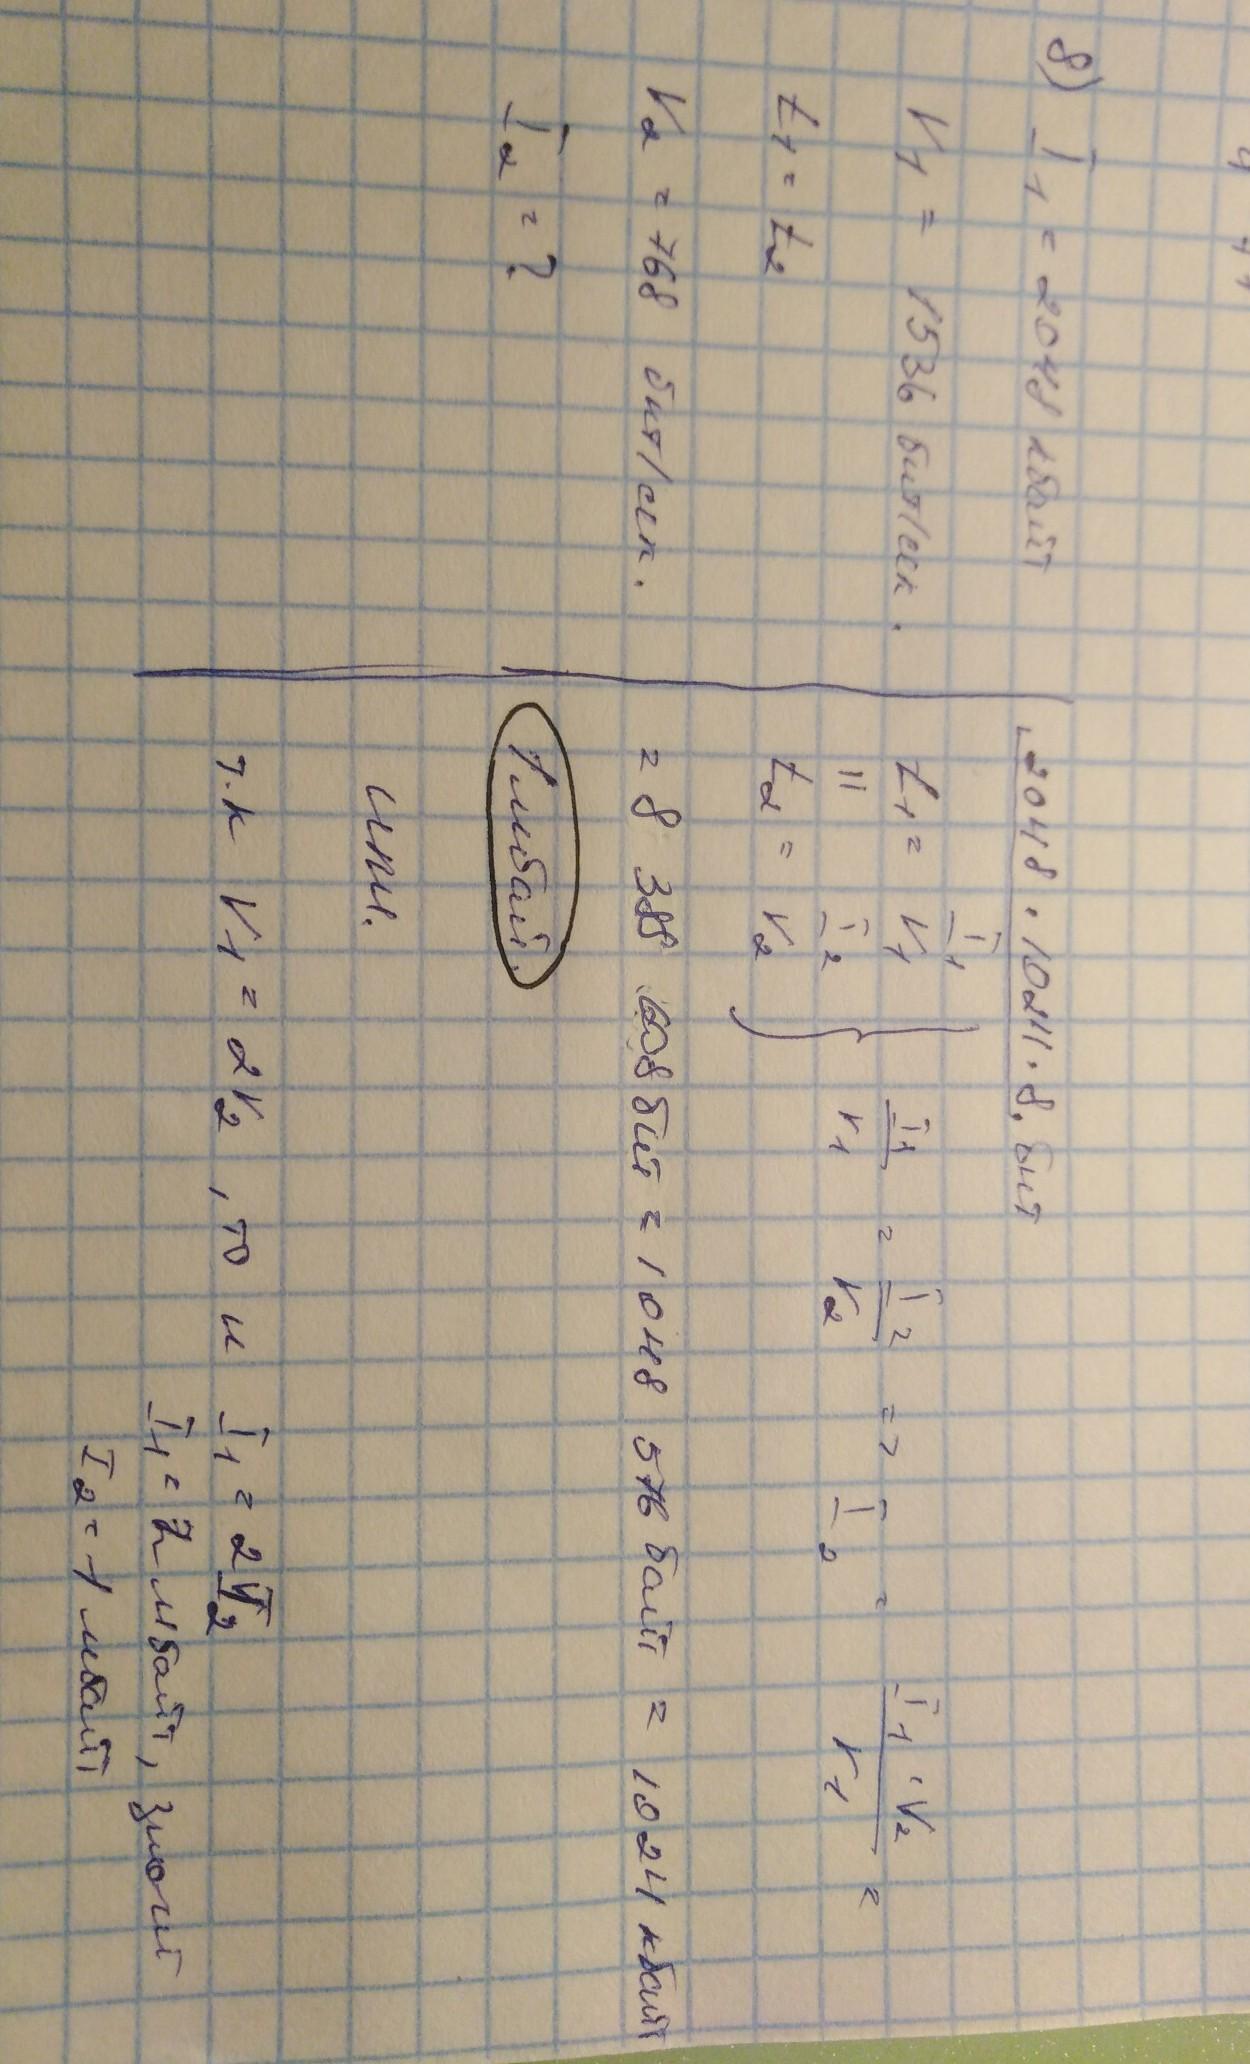 8) I₁ = 2048 кбайт
V₁ = 1536 бит/сек.
t₁ = t₂
V₂ = 768 бит/сек.
I₂ = ?
2048 · 1024 · 8, бит
t₁ = I₁/V₁
=
t₂ = I₂/V₂
} I₁/V₁ = I₂/V₂ => I₂ = I₁·V₂/V₁ =
= 8 388 608 бит = 1 048 576 байт = 1024 кбайт
1 мбайт.
или.
т.к V₁ = 2V₂, то и I₁ = 2I₂
I₁ = 2 мбайт, значит
I₂ = 1 мбайт